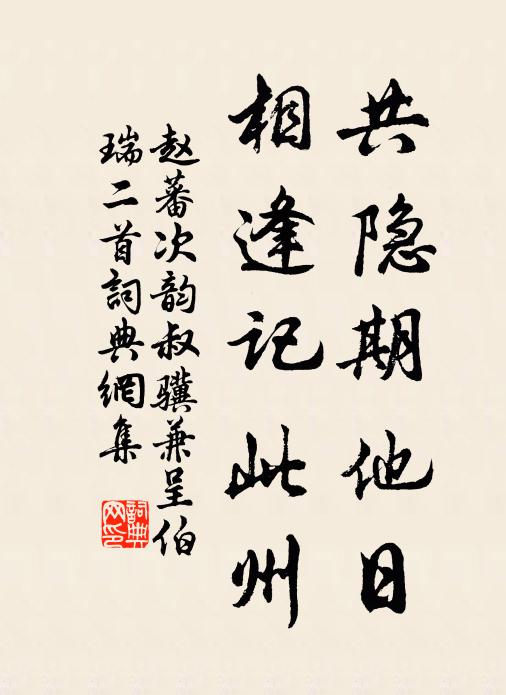 共隐期他日
相逢记此州
赵蕃次韵叔骥兼呈伯
瑞二首詞典網集
詞典
网印